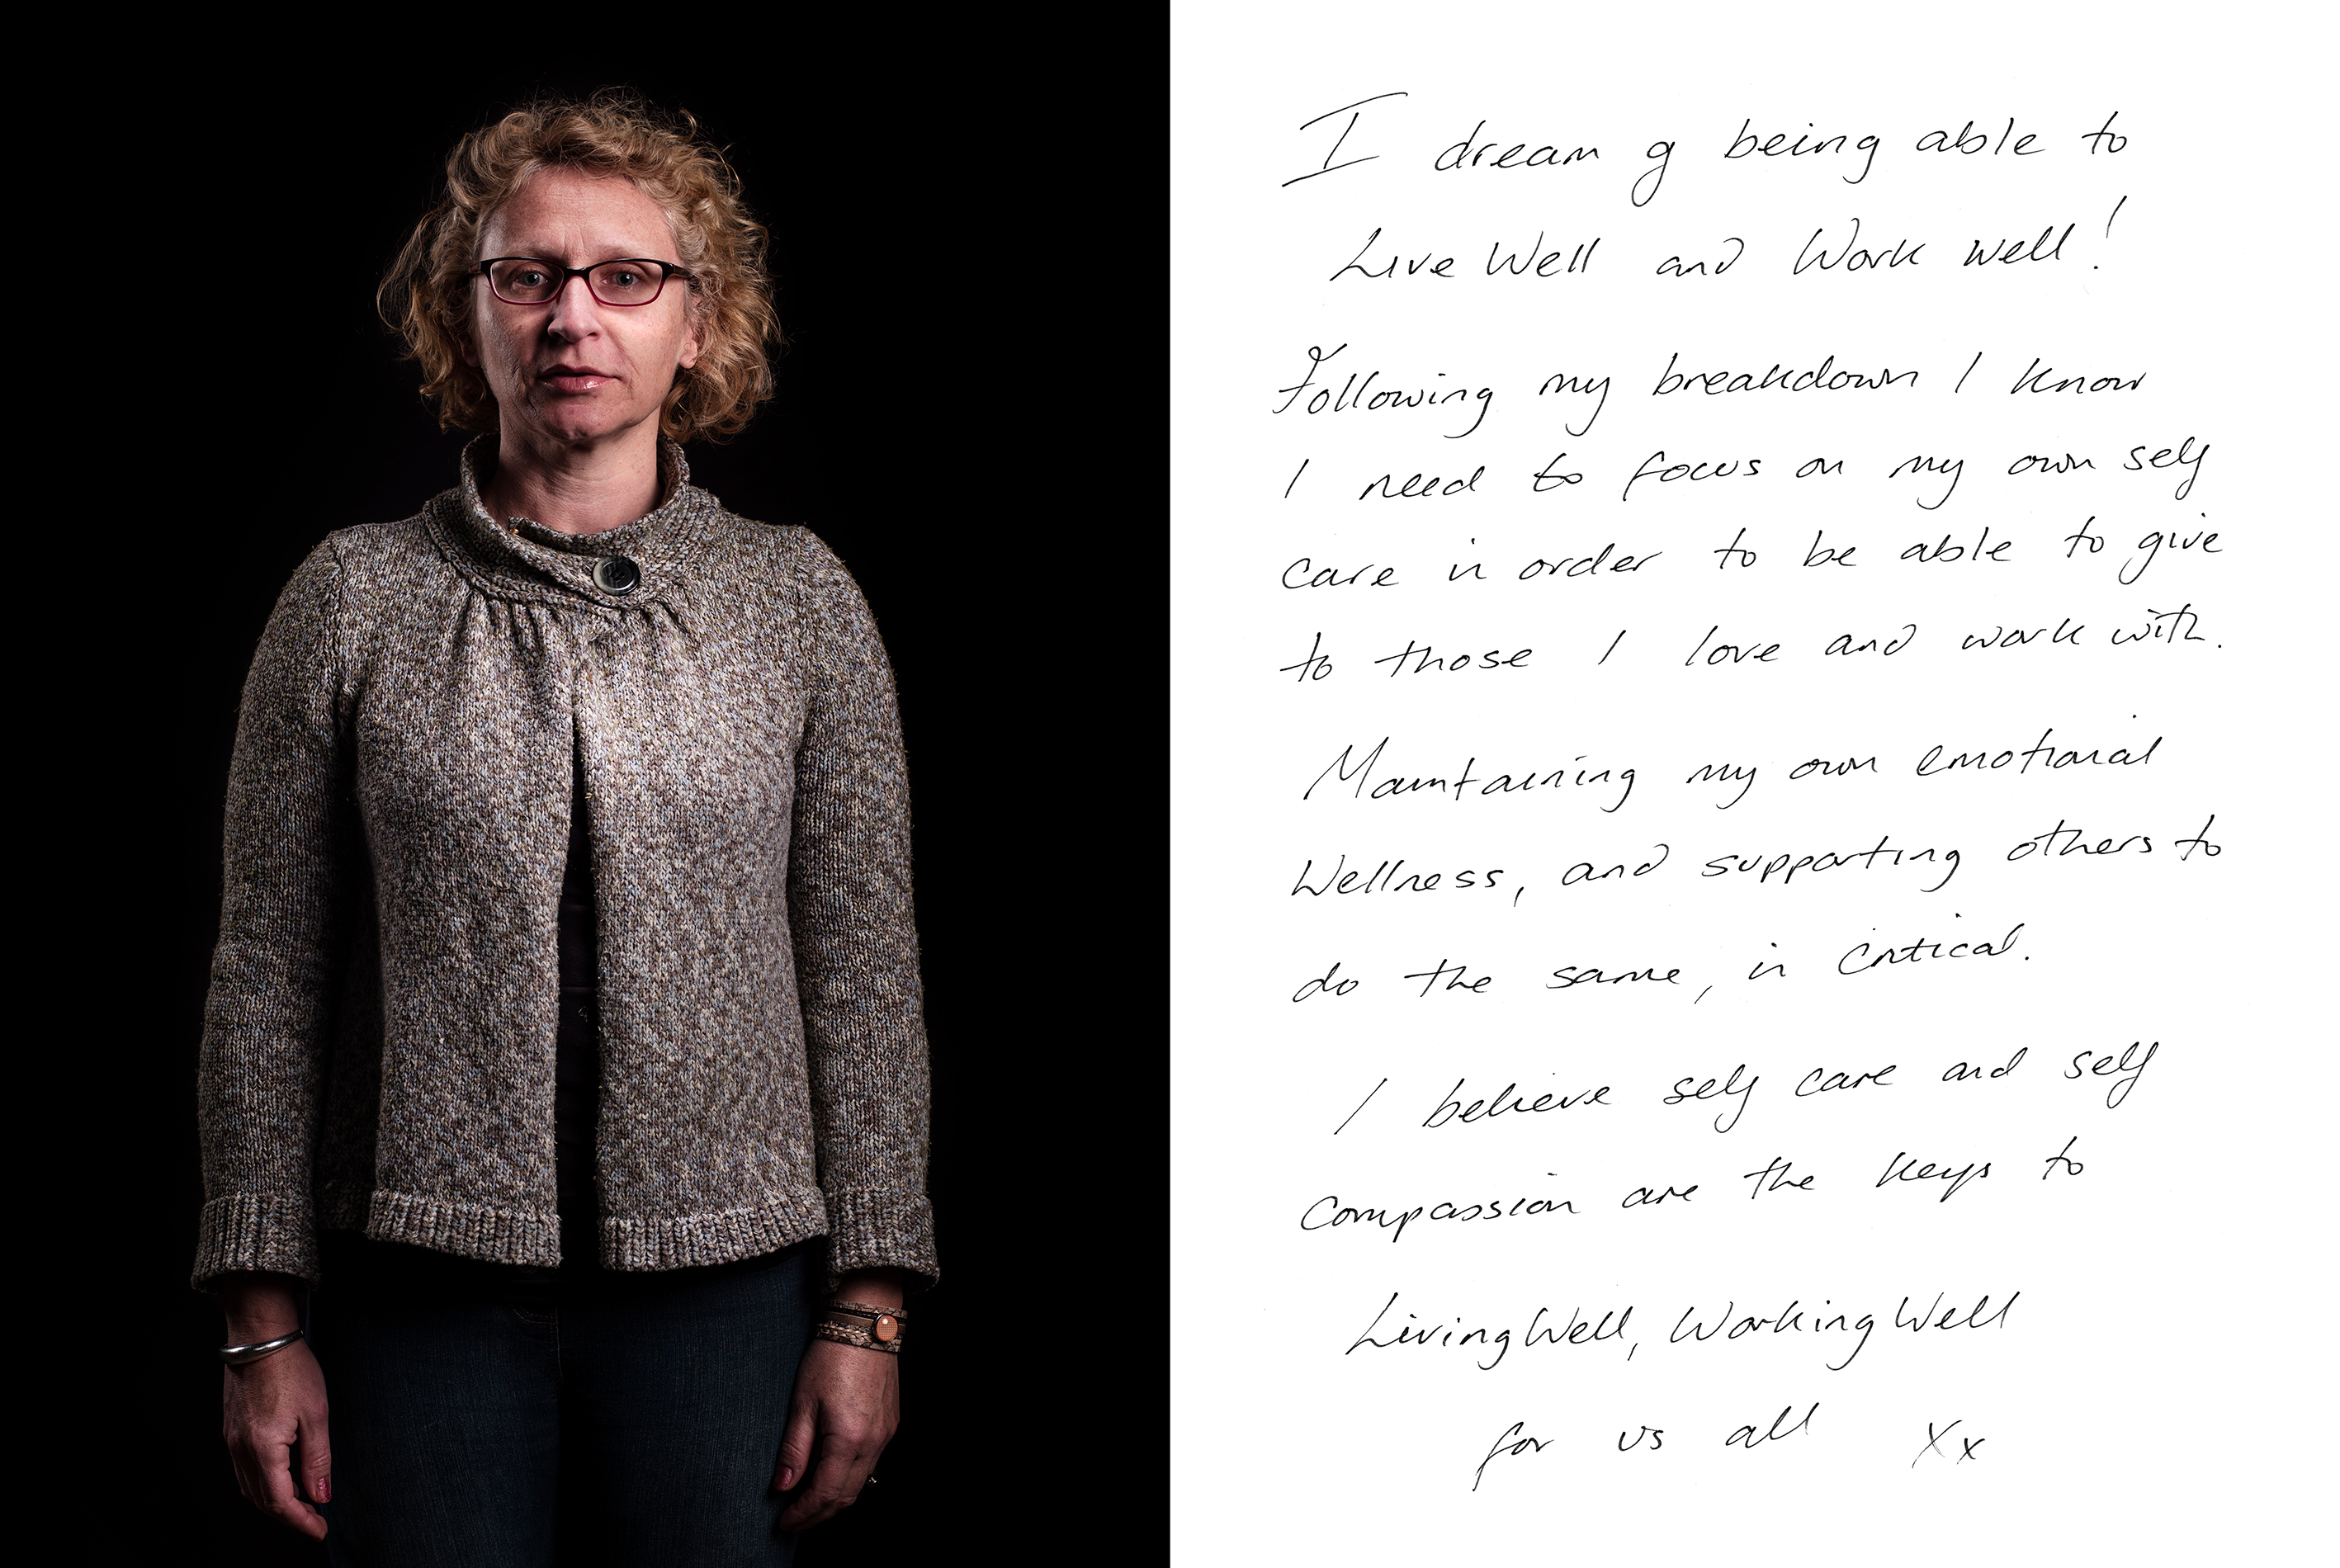 I dream of being able to
Live Well and Work well!
Following my breakdown I know
I need to focus on my own self
care in order to be able to give
to those I love and work with.
Maintaining my own emotional
Wellness, and supporting others to
do the same, is critical.
I believe self care and self
compassion are the keys to
Living Well, Working Well
for us all Xx